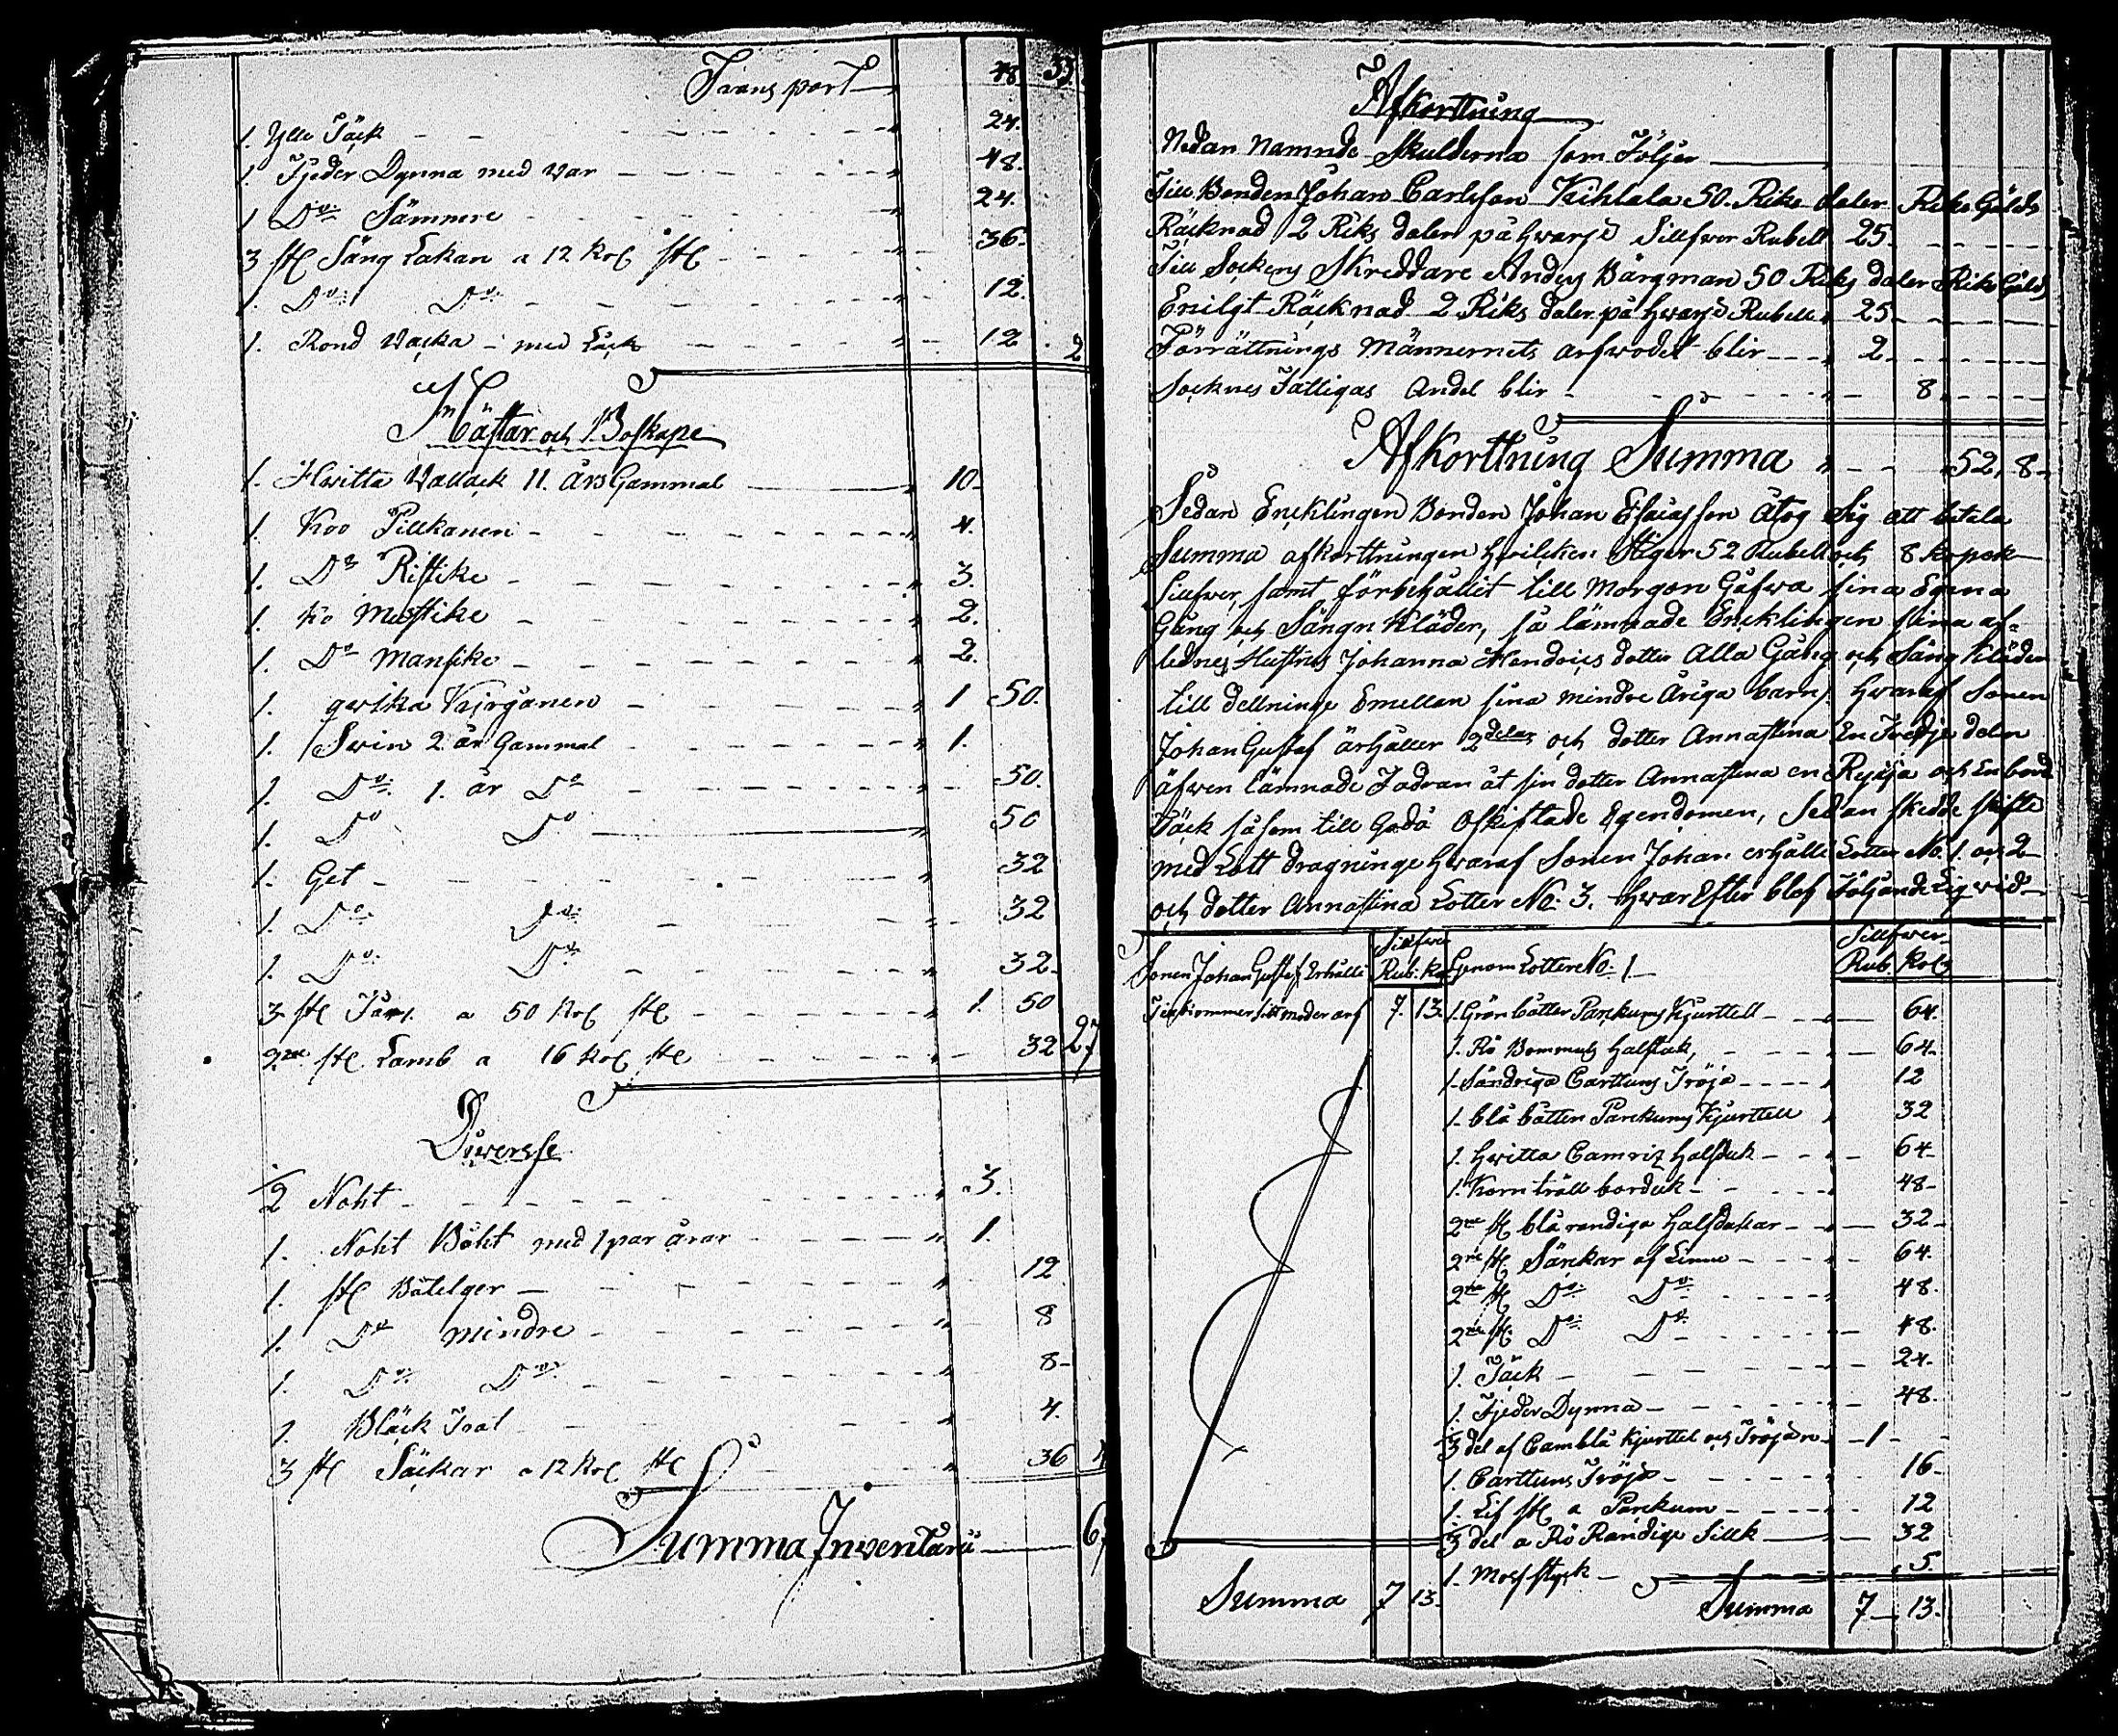 Transport 48. 33.
1. Ylle Täck 24.
1. Fjeder Dynna med Var 48.
1 Do Sämmre 24.
3 st Säng Lakan a 12 Kop st 36.
1. Do Do 12.
1. Rond Vacka med Låck 12. 2
Hästar och Boskape
1. Hwitta Vallack 11. års Gammal 10
1. Koo Pillkanen 4.
1. Do Ristike 3.
1. Ko Mustike 2.
1. Do Mansike 2.
1. qwika Kirjånen 1 50.
1. Swin 2. år Gammal 1.
1. Do 1. år Do 50.
1. Do Do 50
1. Get 32
1. Do Do 32
1. Do Do 32
3 st Får a 50 Kop st 1. 50
2ne st Lamb a 16 Kop st 32 27
Diwersse
1/2 Noht 3.
1. Noht Båht med 1 par årar 1.
1. st Båtelger 12
1. Do mindre 8
1. Do Do 8
1. Bläck Tral 4.
3 st Säckar a 12 Kop st 36 4
Summa Inventarii 6
Afkorttning
Nedan Namnde Skulderna som Följer
Till Bonden Johan Carlsson Kihlala 50. Riks daler Riks Gälds
Räcknad 2 Riks daler på hwarje Sillfwer Rubell 25.
Till Sockens Skreddare Anders Bärgman 50 Riks daler Riks Gälds
Enligt Räcknad 2 Riks daler på hwarje Rubell 25
Förrättnings Männernets arfwodet blir 2
Socknes Fattigas Andel blir 8
Afkorttning Summa 52, 8
Sedan Encklingen Bonden Johan Esaiasson åtog Sig att betala
Summa afkorttningen hwilcken Stiger 52 Rubell och 8 kopek
Sillfwer, samt förbehållit till Morgon Gåfwa sina Egena
Gång och Sängn Kläder, så lämnade Encklingen sina af-
lednes Hustrus Johanna Hendrics dotter Alla Gång och Säng Kläder
till dellninge Emellan sina mindre Åriga barn, hwaraf Sonen
Johan Gustaf ärhåller 2 delar och dotter Annastina En Tredje delen
äfwen lämnade Fadran åt sin dotter Annastina en Ryssja och En bord
Täck såsom till Godå Oskiftade Egendomen, Sedan skedde skifte
med Lott dragninge hwaraf Sonen Johan erhålle Lotter No. 1. och 2
och dotter Annastina Lotter No. 3. hwar Efter blef Följande Liqwid
Sonen Johan Gustaf Erhålle Sillfwer Rub. Ko. Genom Lotter No. 1 Sillfwer Rub. Kop
Tilkommer sitt moder arf 7. 13. 1. Grön båtten Parckums Kjurttell 64.
1. Rö Bommuls halsduk, 64.
1. Sändriga Carttuns Tröja 12
1. blå båtten Parckums Kjurttell 32
1. hwitta Camriz halsduk 64
1. Korn träll borduk 48
2ne st blå randiga halsdukar 32
2ne st Särckar af Linne 64.
2ne st Do Do 48.
2ne st Do Do 48.
1. Täck 24.
1. Fjeder Dynna 48.
3 del af Camblå Kjurttel och Tröjan 1
1. Carttuns Tröja 16
1. Lif st a Parckum 12
3 del a Rö Randiga Sillk 32
1. Moss styck 5.
Summa 7 13. Summa 7 13.